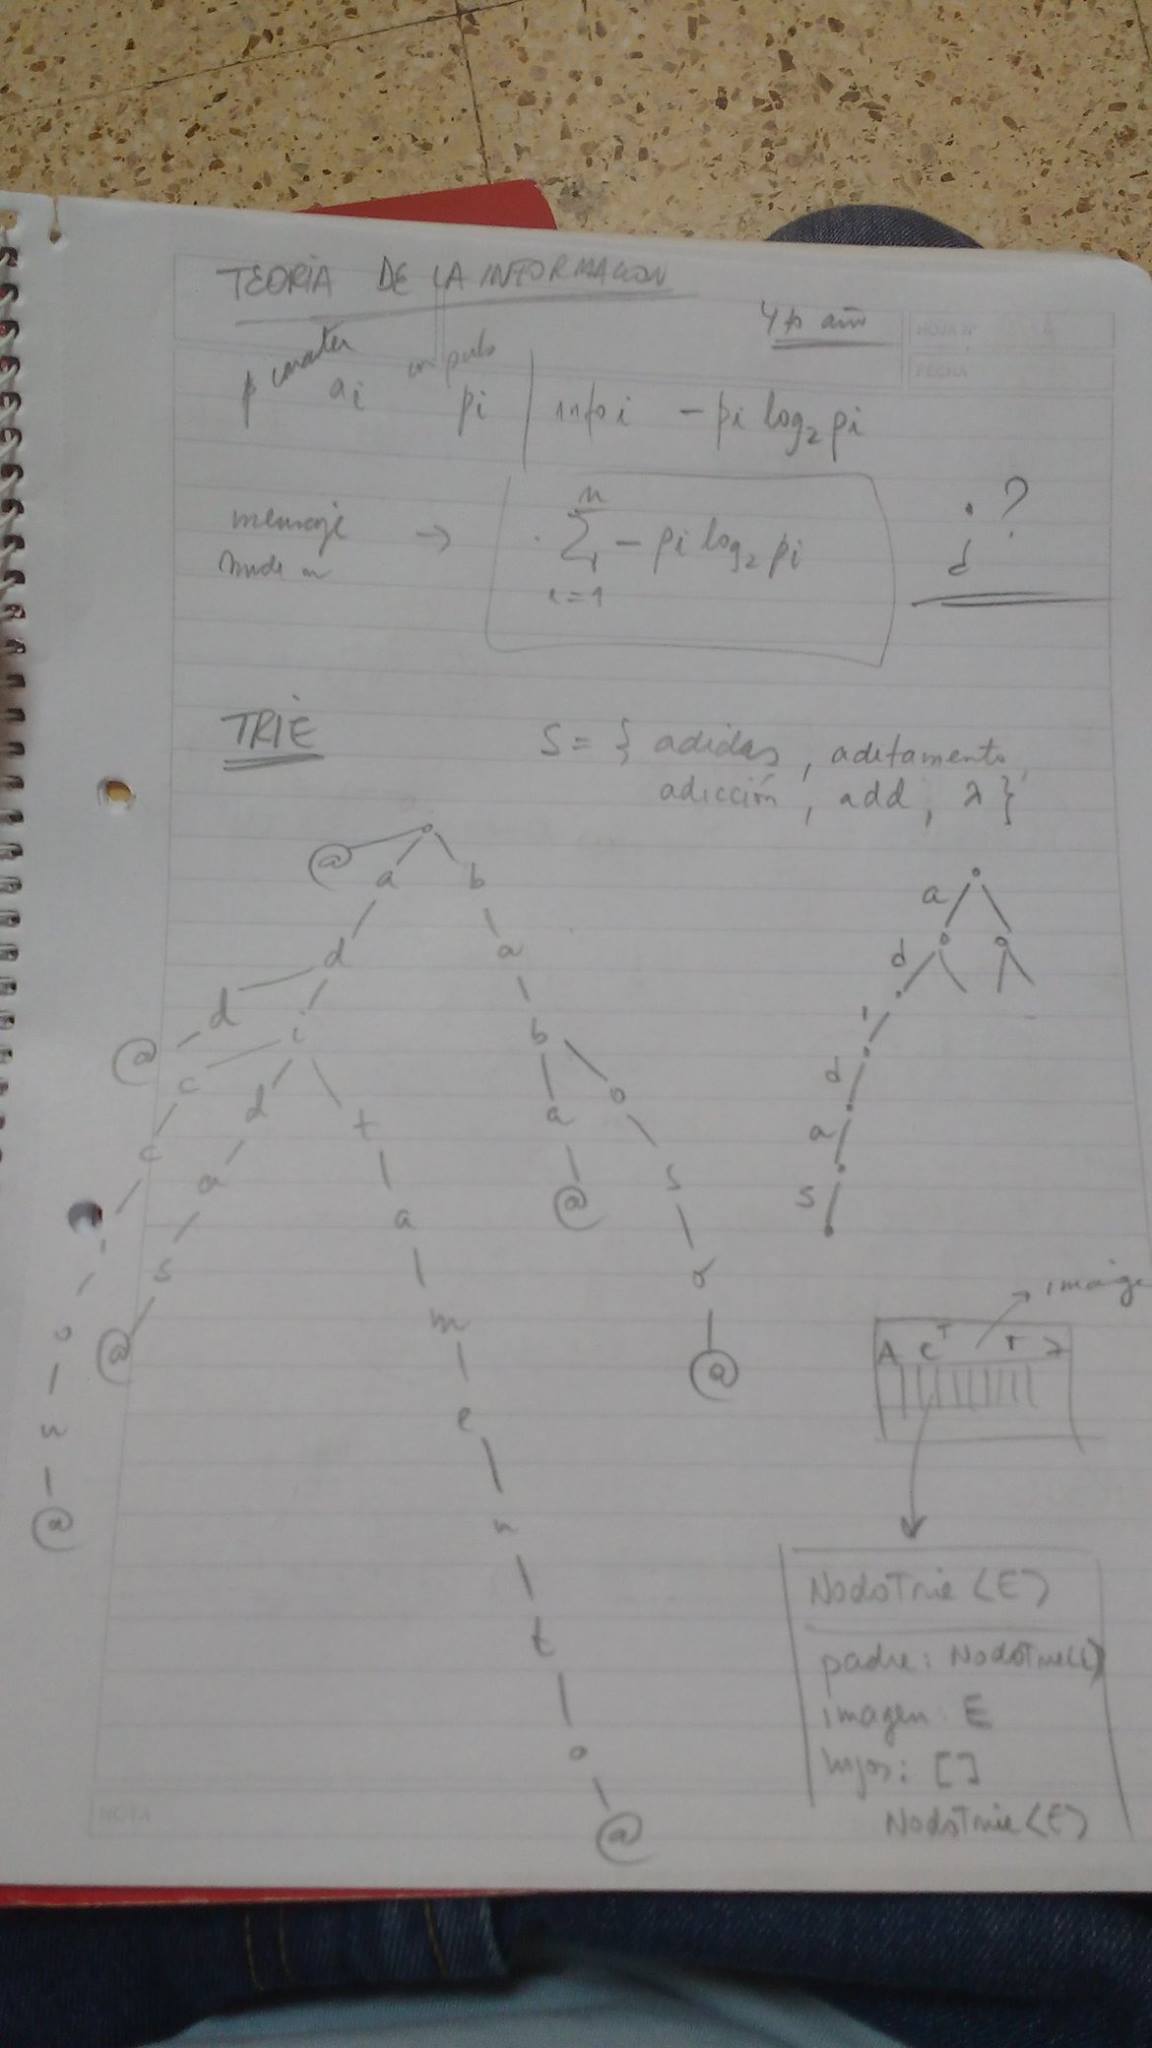 TEORIA DE LA INFORMACION
4º año
HOJA Nº
FECHA
p caracter ai con prob pi | info i - pi log₂ pi
mensaje → ∑ i=1 n - pi log₂ pi
mide
¿ ?
TRIE
S = { adidas, aditamento,
adicción, add, λ }
@ a b
d a
d i b
@ c d t a o
c a a @ s
i s m o
o @ e @
n n
@ t
o
@
a
d
i
d
a
s
imagen
A C T Z
NodoTrie <E>
padre: NodoTrie<E>
imagen: E
hijos: []
NodoTrie <E>
NOTA